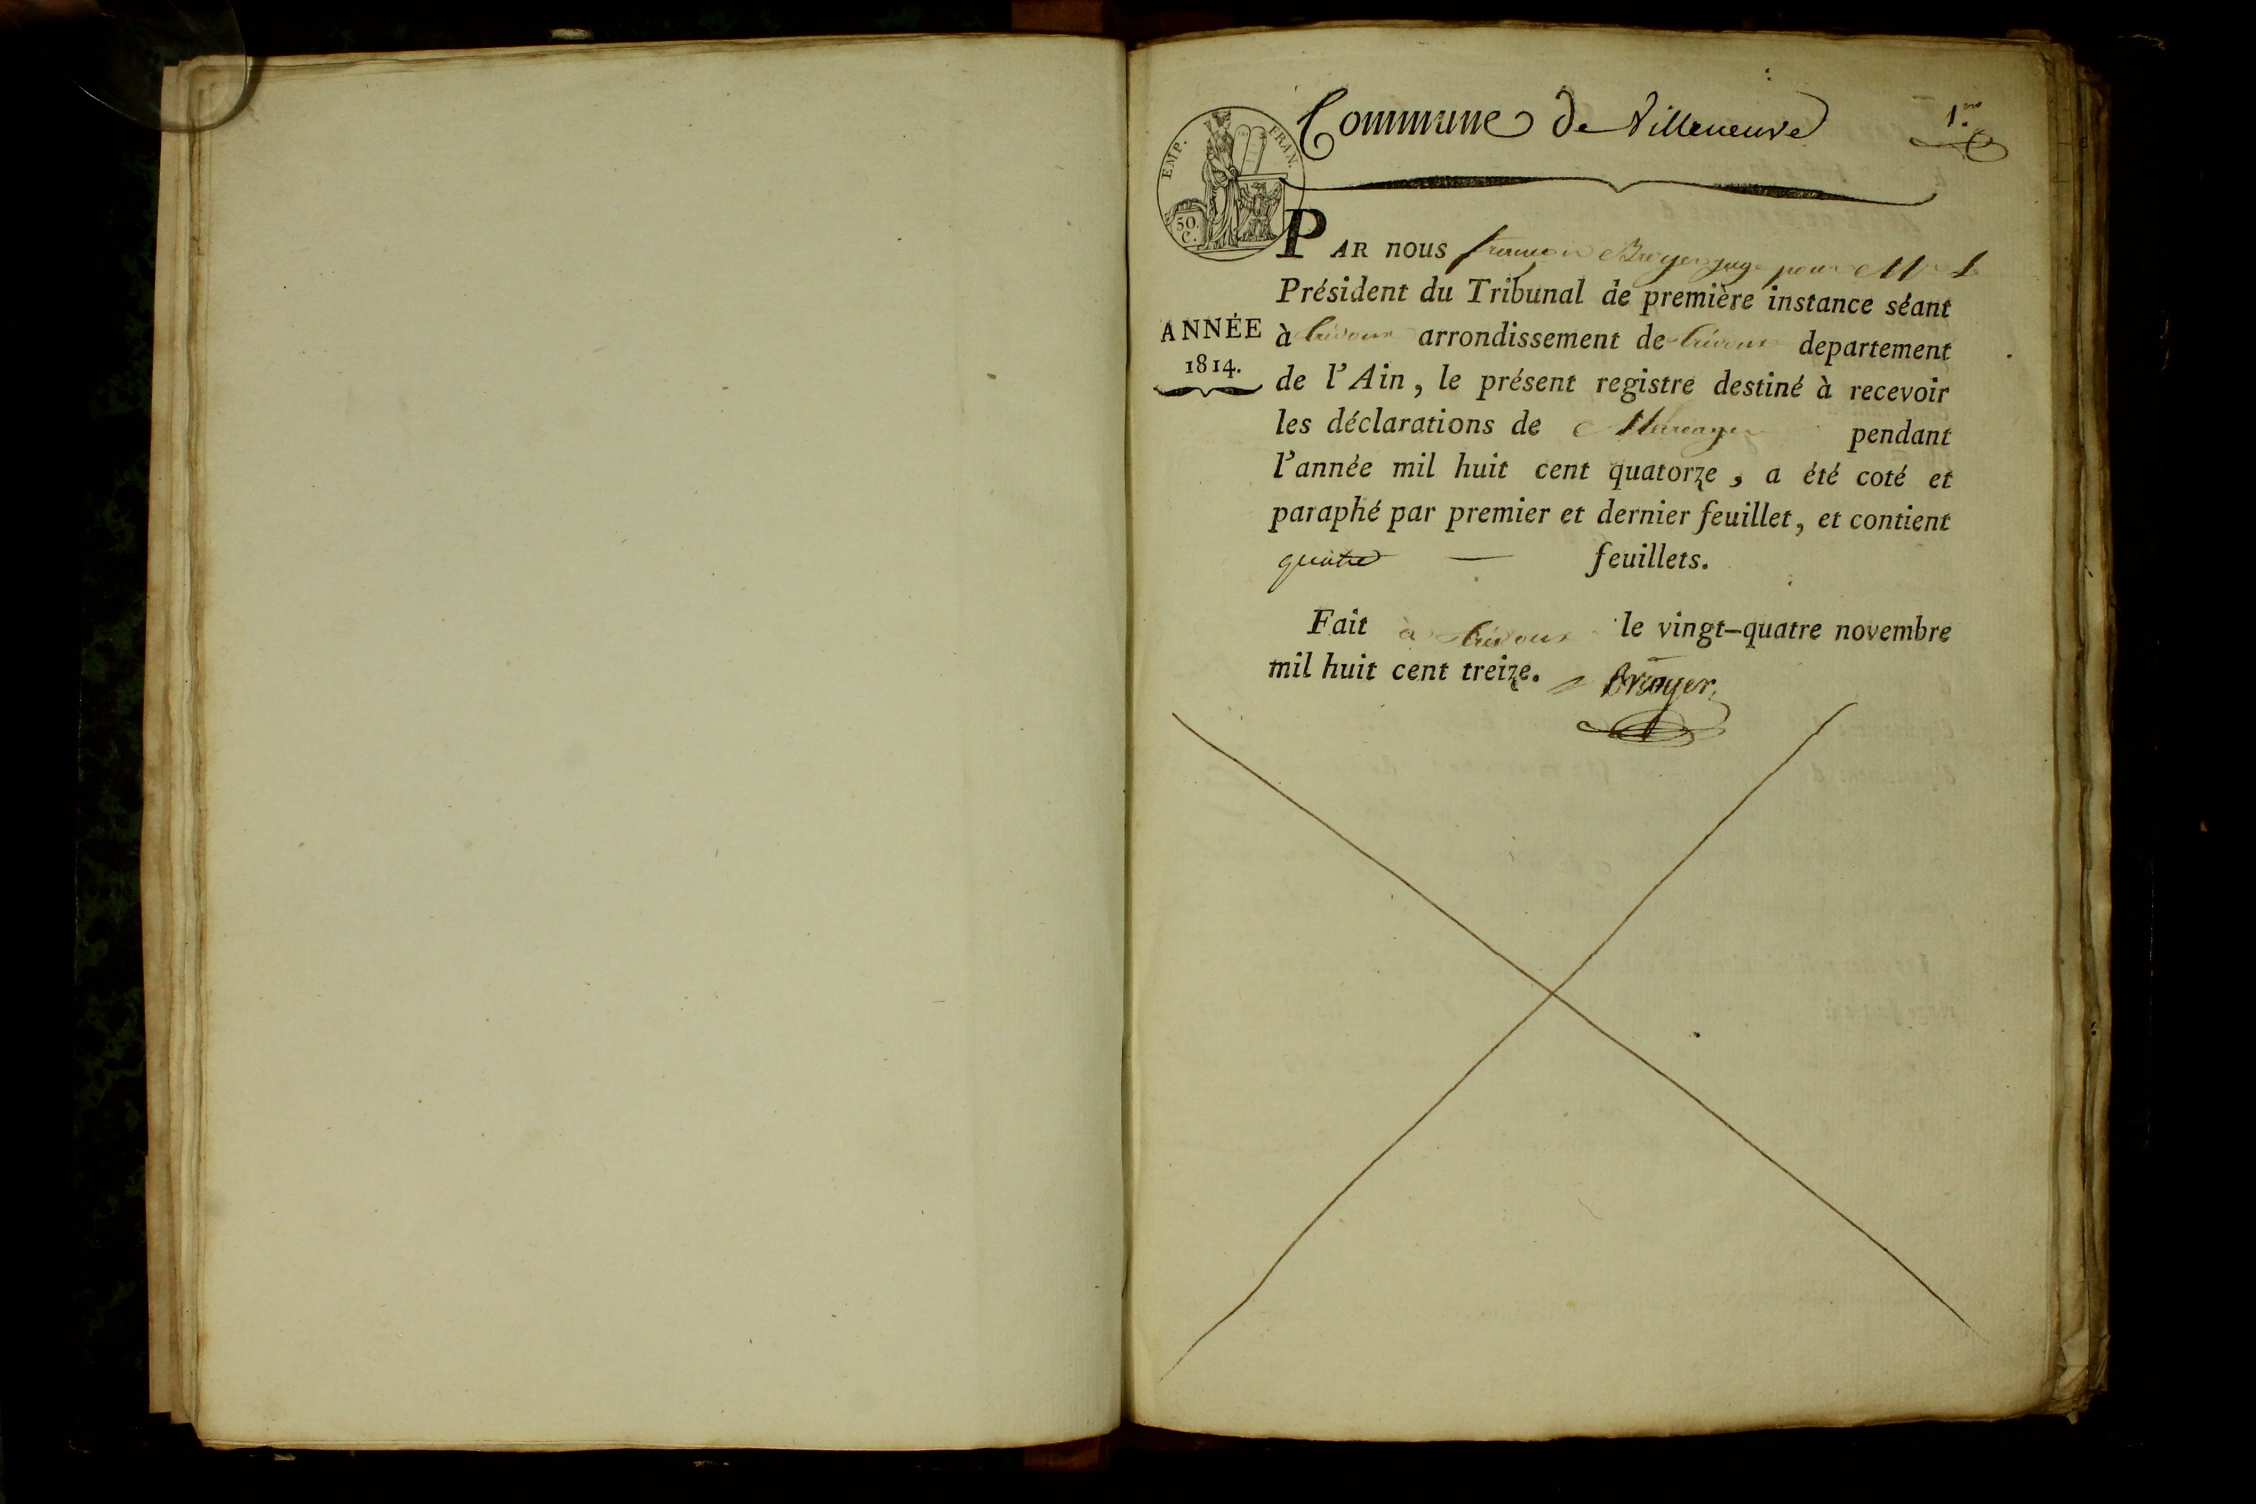 Commune de Villeneuve
1.er
EMP. FRAN.
50 C.
PAR nous françois Bruyer juge pour Mr. le
Président du Tribunal de première instance séant
ANNÉE 1814.
à trévoux arrondissement de trévoux departement
de l'Ain, le présent registre destiné à recevoir
les déclarations de Mariages pendant
l'année mil huit cent quatorze, a été coté et
paraphé par premier et dernier feuillet, et contient
quatre — feuillets.
Fait à trévoux le vingt-quatre novembre
mil huit cent treize.